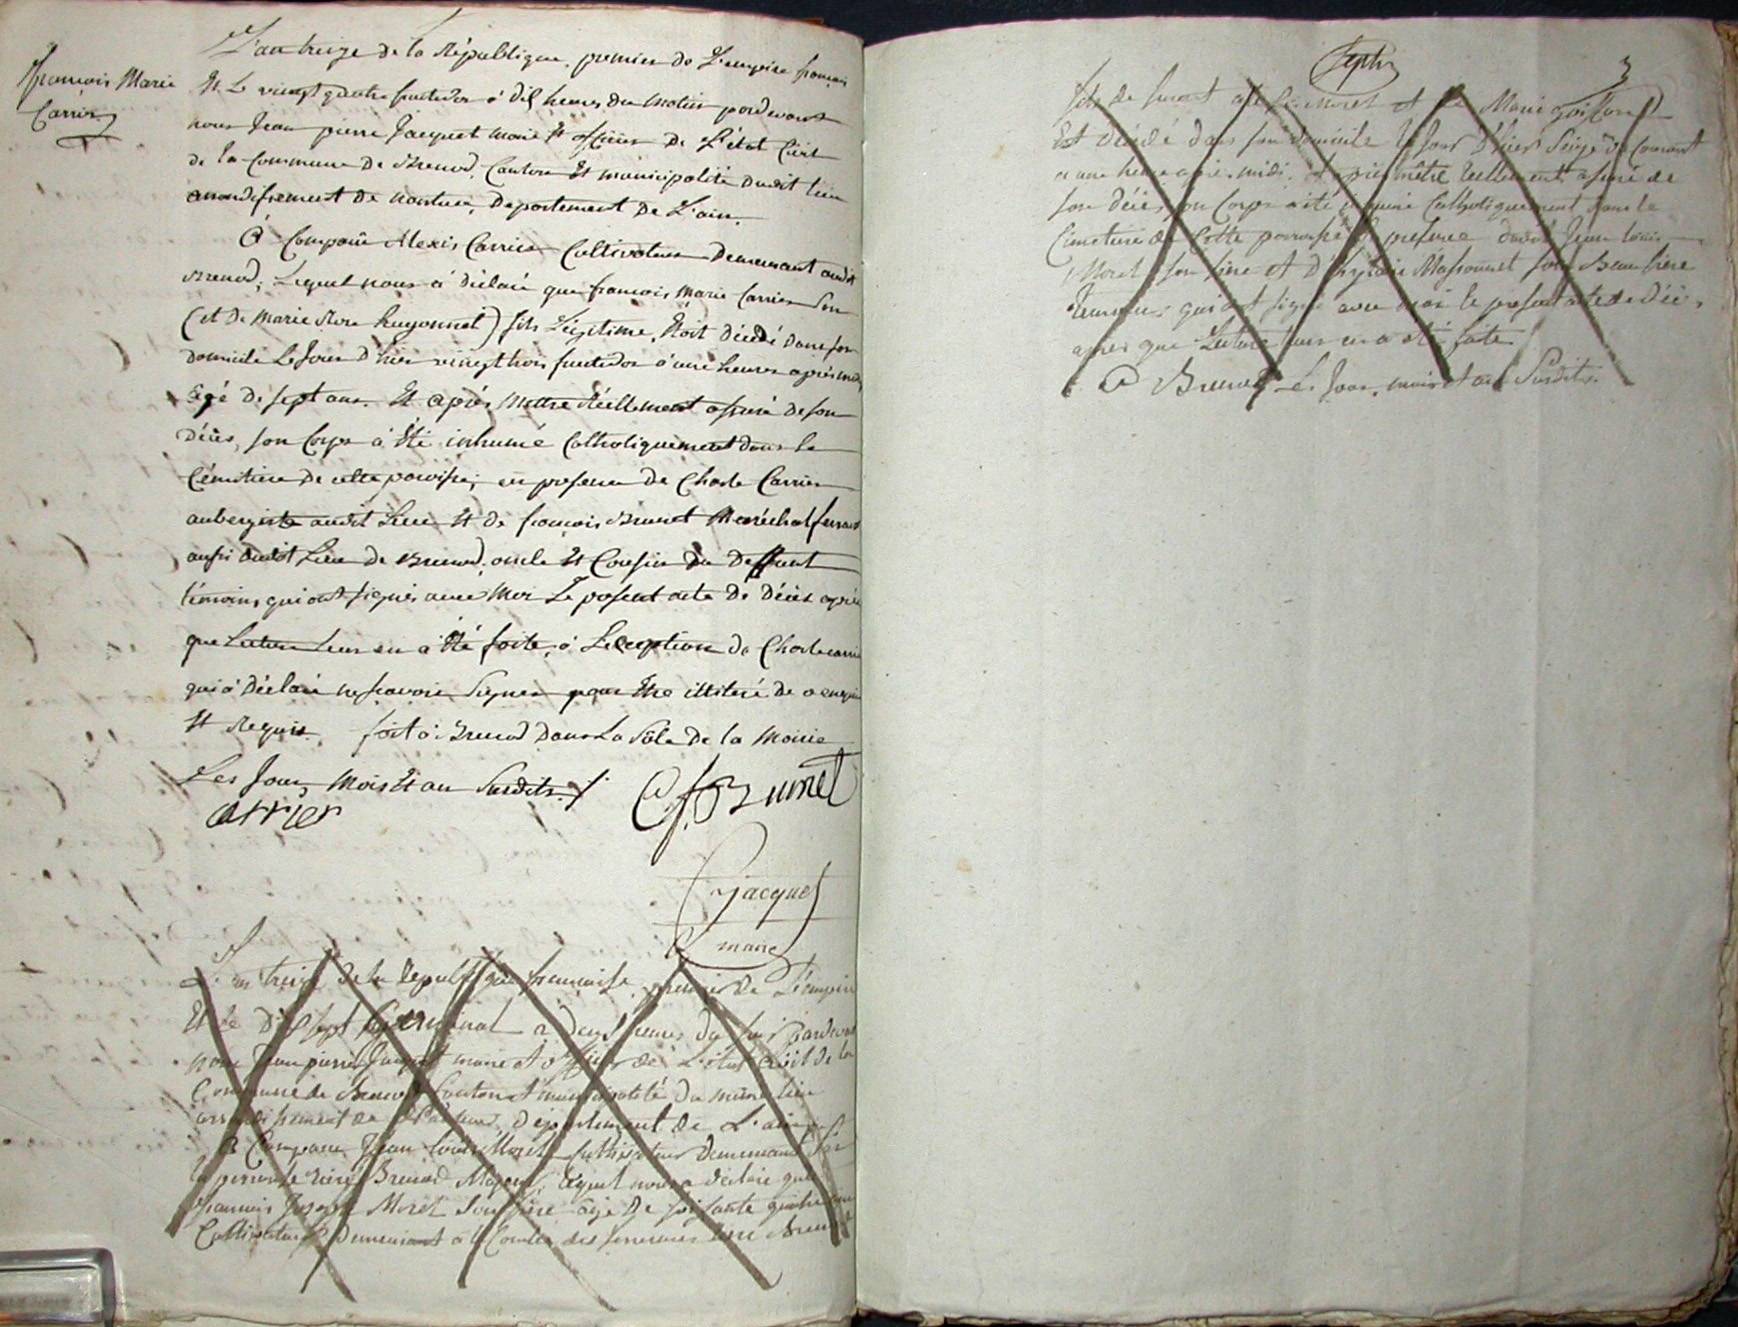 françois Marie
Carrier
L'an treize de la République, premier de L'empire français
Et Le vingt quatre fructidor à dix heures du matin pardevant
nous Jean pierre Jacquet maire Et officier de L'état Civil
de la Commune de Brenod, Canton Et municipalité dudit lieu
arrondissement de nantua, Departement de L'ain,
A Comparû Alexis Carrier Cultivateur Demeurant audit
Brenod, Lequel nous à déclaré que françois Marie Carrier Son
(et de Marie Rose huyonnet) fils Légitime, Etoit décédé dans son
domicile Le Jour d'hier vingt trois fructidor à une heure après midi
agé de sept ans. Et après m'ettre Réellement assuré de son
décès, son Corps à Eté inhumé Catholiquement dans le
Cémitiere de cette paroisse, en presence de Charle Carrier
aubergiste audit Lieu Et de françois Brunet Maréchal ferrant
aussi audit Lieu de Brenod, oncle Et Cousin du Deffunt
témoins qui ont signés avec Moi Le present acte de décès après
que Lecture Leur en à Eté faite, à L'exception de Charle Carrier
qui à Déclaré ne scavoir Signer pour Etre illitéré de ce enquis
Et Requis. fait à Brenod Dans La Sale de la Mairie
Les Jour, Mois Et an Susdits ./.
Carrier
f. Brunet
Jacquet
maire
L'an treize de la Republique francaise premier de L'empire
Et le dix sept Germinal a deux heures du soir pardevant
nous Jean pierre Jacquet maire et officier de L'état Civil de la
Commune de Brenod Canton et municipalité du même lieu
arrondissement de Nantua, Département de L'ain
A Comparu Jean Louis Moret Cultivateur Demeurant
Brenod Majeur, Lequel nous a déclaré que
francois Joseph Moret Son père agé de soissante quatre ans
Cultivateur Demeurant à la Combe des Brenod
Sept
3
fils de furent Moret et de Marie
Est décédé dans son domicile le Jour d'hier Seize du Courant
a une heure après midi. Et après m'être Réellement assuré de
son décès, son Corps a été inhumé Catholiquement dans le
Cimetiere de cette paroisse en presence dudit Jean Louis
Moret son fils et d' Massonnet son Beau frère
Temoins qui ont signé avec moi le present acte de décès,
après que Lecture leur en a été faite
A Brenod Les Jour, mois et an Susdits.